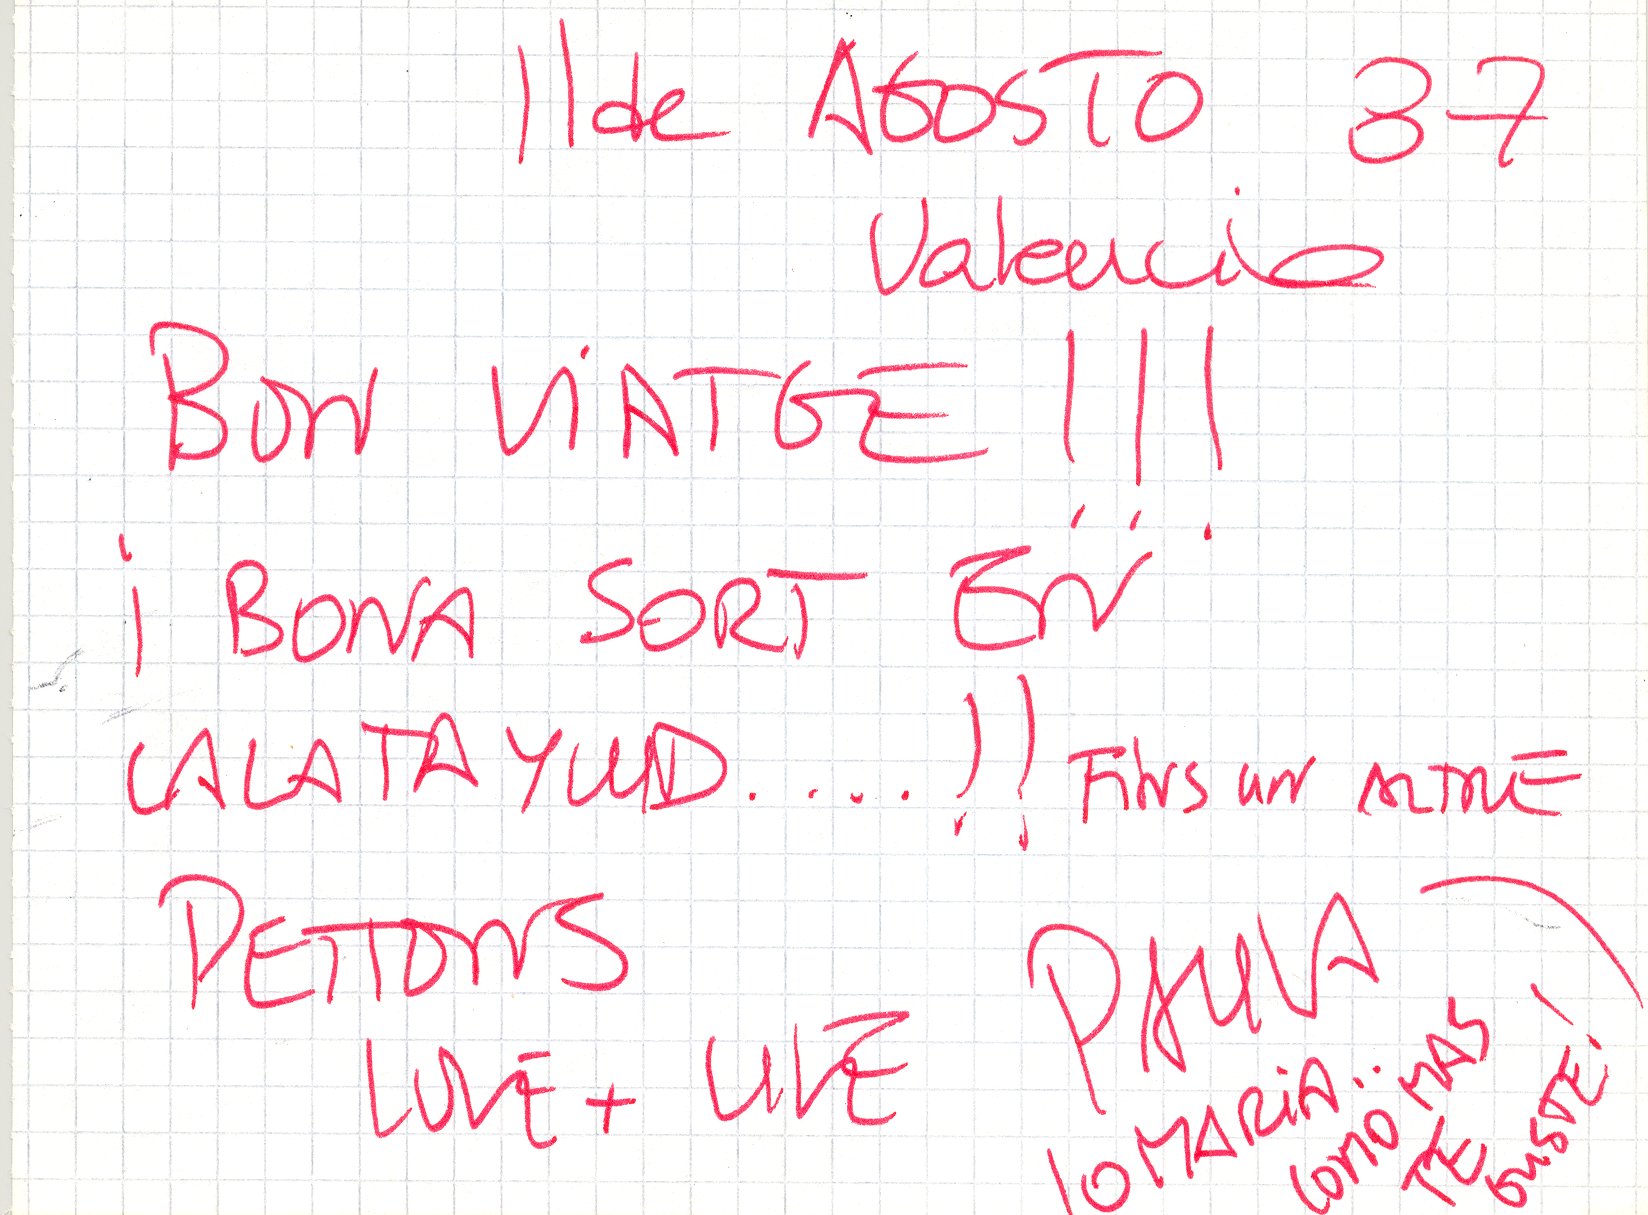 11 de AGOSTO 87
Valencia
BON VIATGE!!!
¡BONA SORT EN
CALATAYUD.....!! FINS UN ALTRE
PETTONS
LOVE + LIVE
PAULA
(O MARIA..
COMO MAS
TE
GUSTE!)